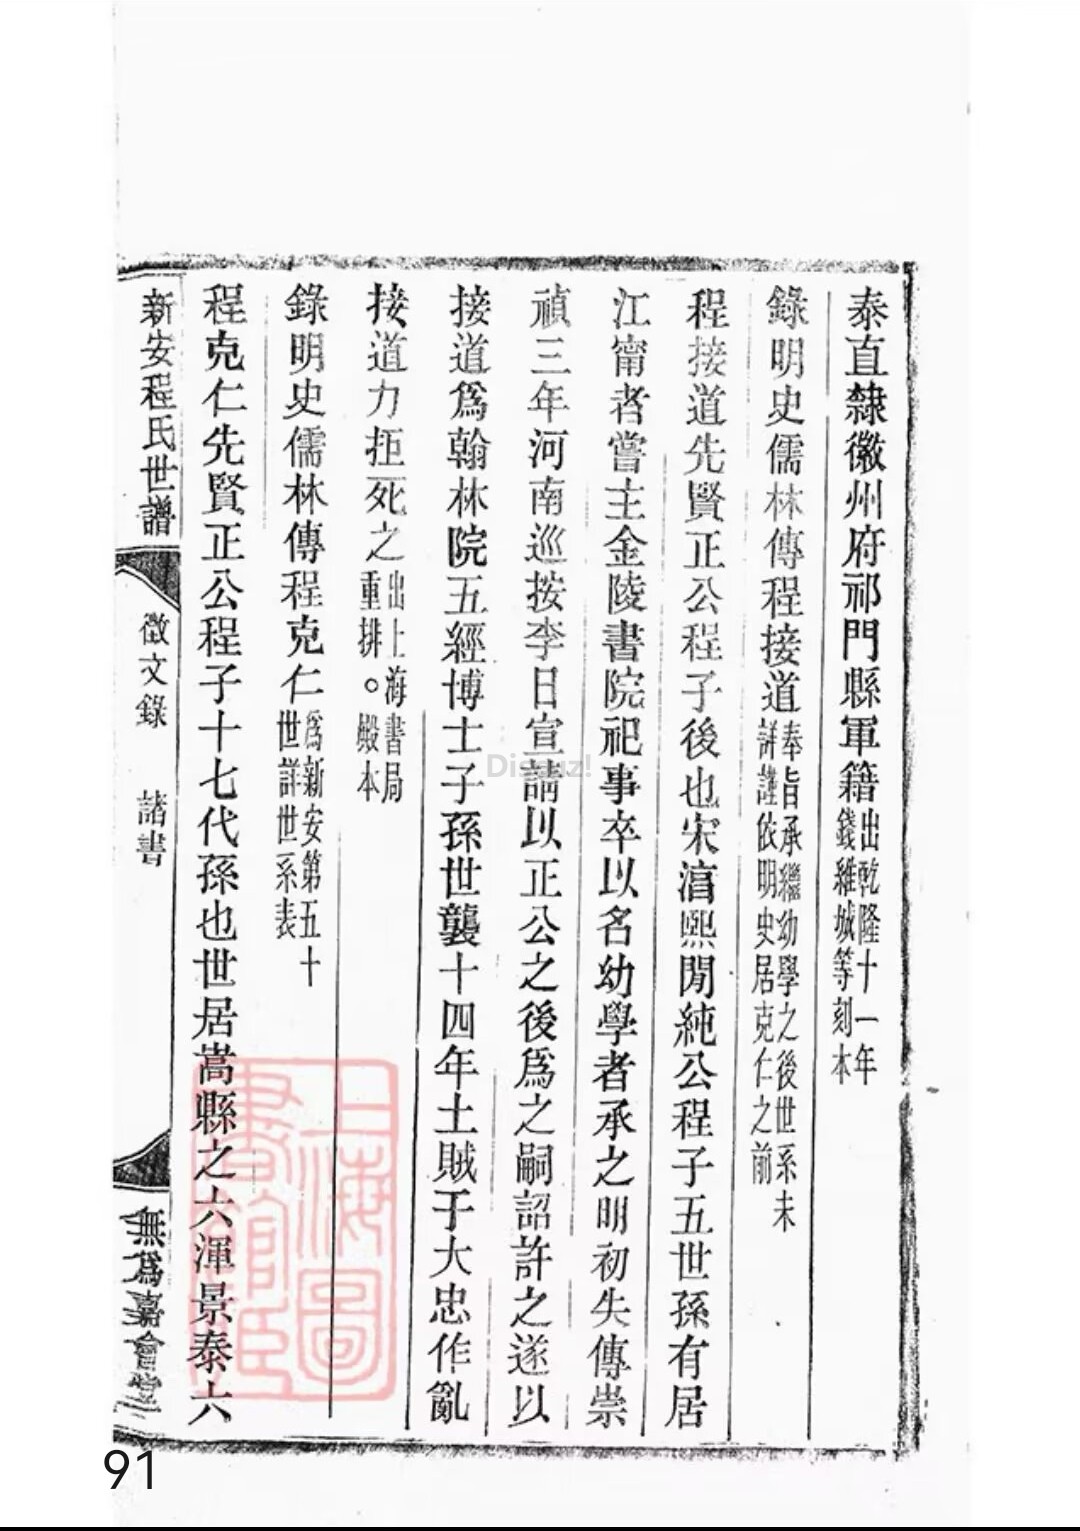 泰直隸徽州府祁門縣軍籍出乾隆十一年錢維城等刻本
錄明史儒林傳程接道奉旨承繼幼學之後世系未詳謹依明史居克仁之前
程接道先賢正公程子後也宋淳熙閒純公程子五世孫有居
江甯者嘗主金陵書院祀事卒以名幼學者承之明初失傳崇
禎三年河南巡按李日宣請以正公之後爲之嗣詔許之遂以
接道爲翰林院五經博士子孫世襲十四年土賊于大忠作亂
接道力拒死之出上海書局重排。殿本
錄明史儒林傳程克仁爲新安第五十世詳世系表
程克仁先賢正公程子十七代孫也世居嵩縣之六渾景泰六
新安程氏世譜
徵文錄
諸書
無爲嘉會堂
上海圖書館藏
Discuz!
91